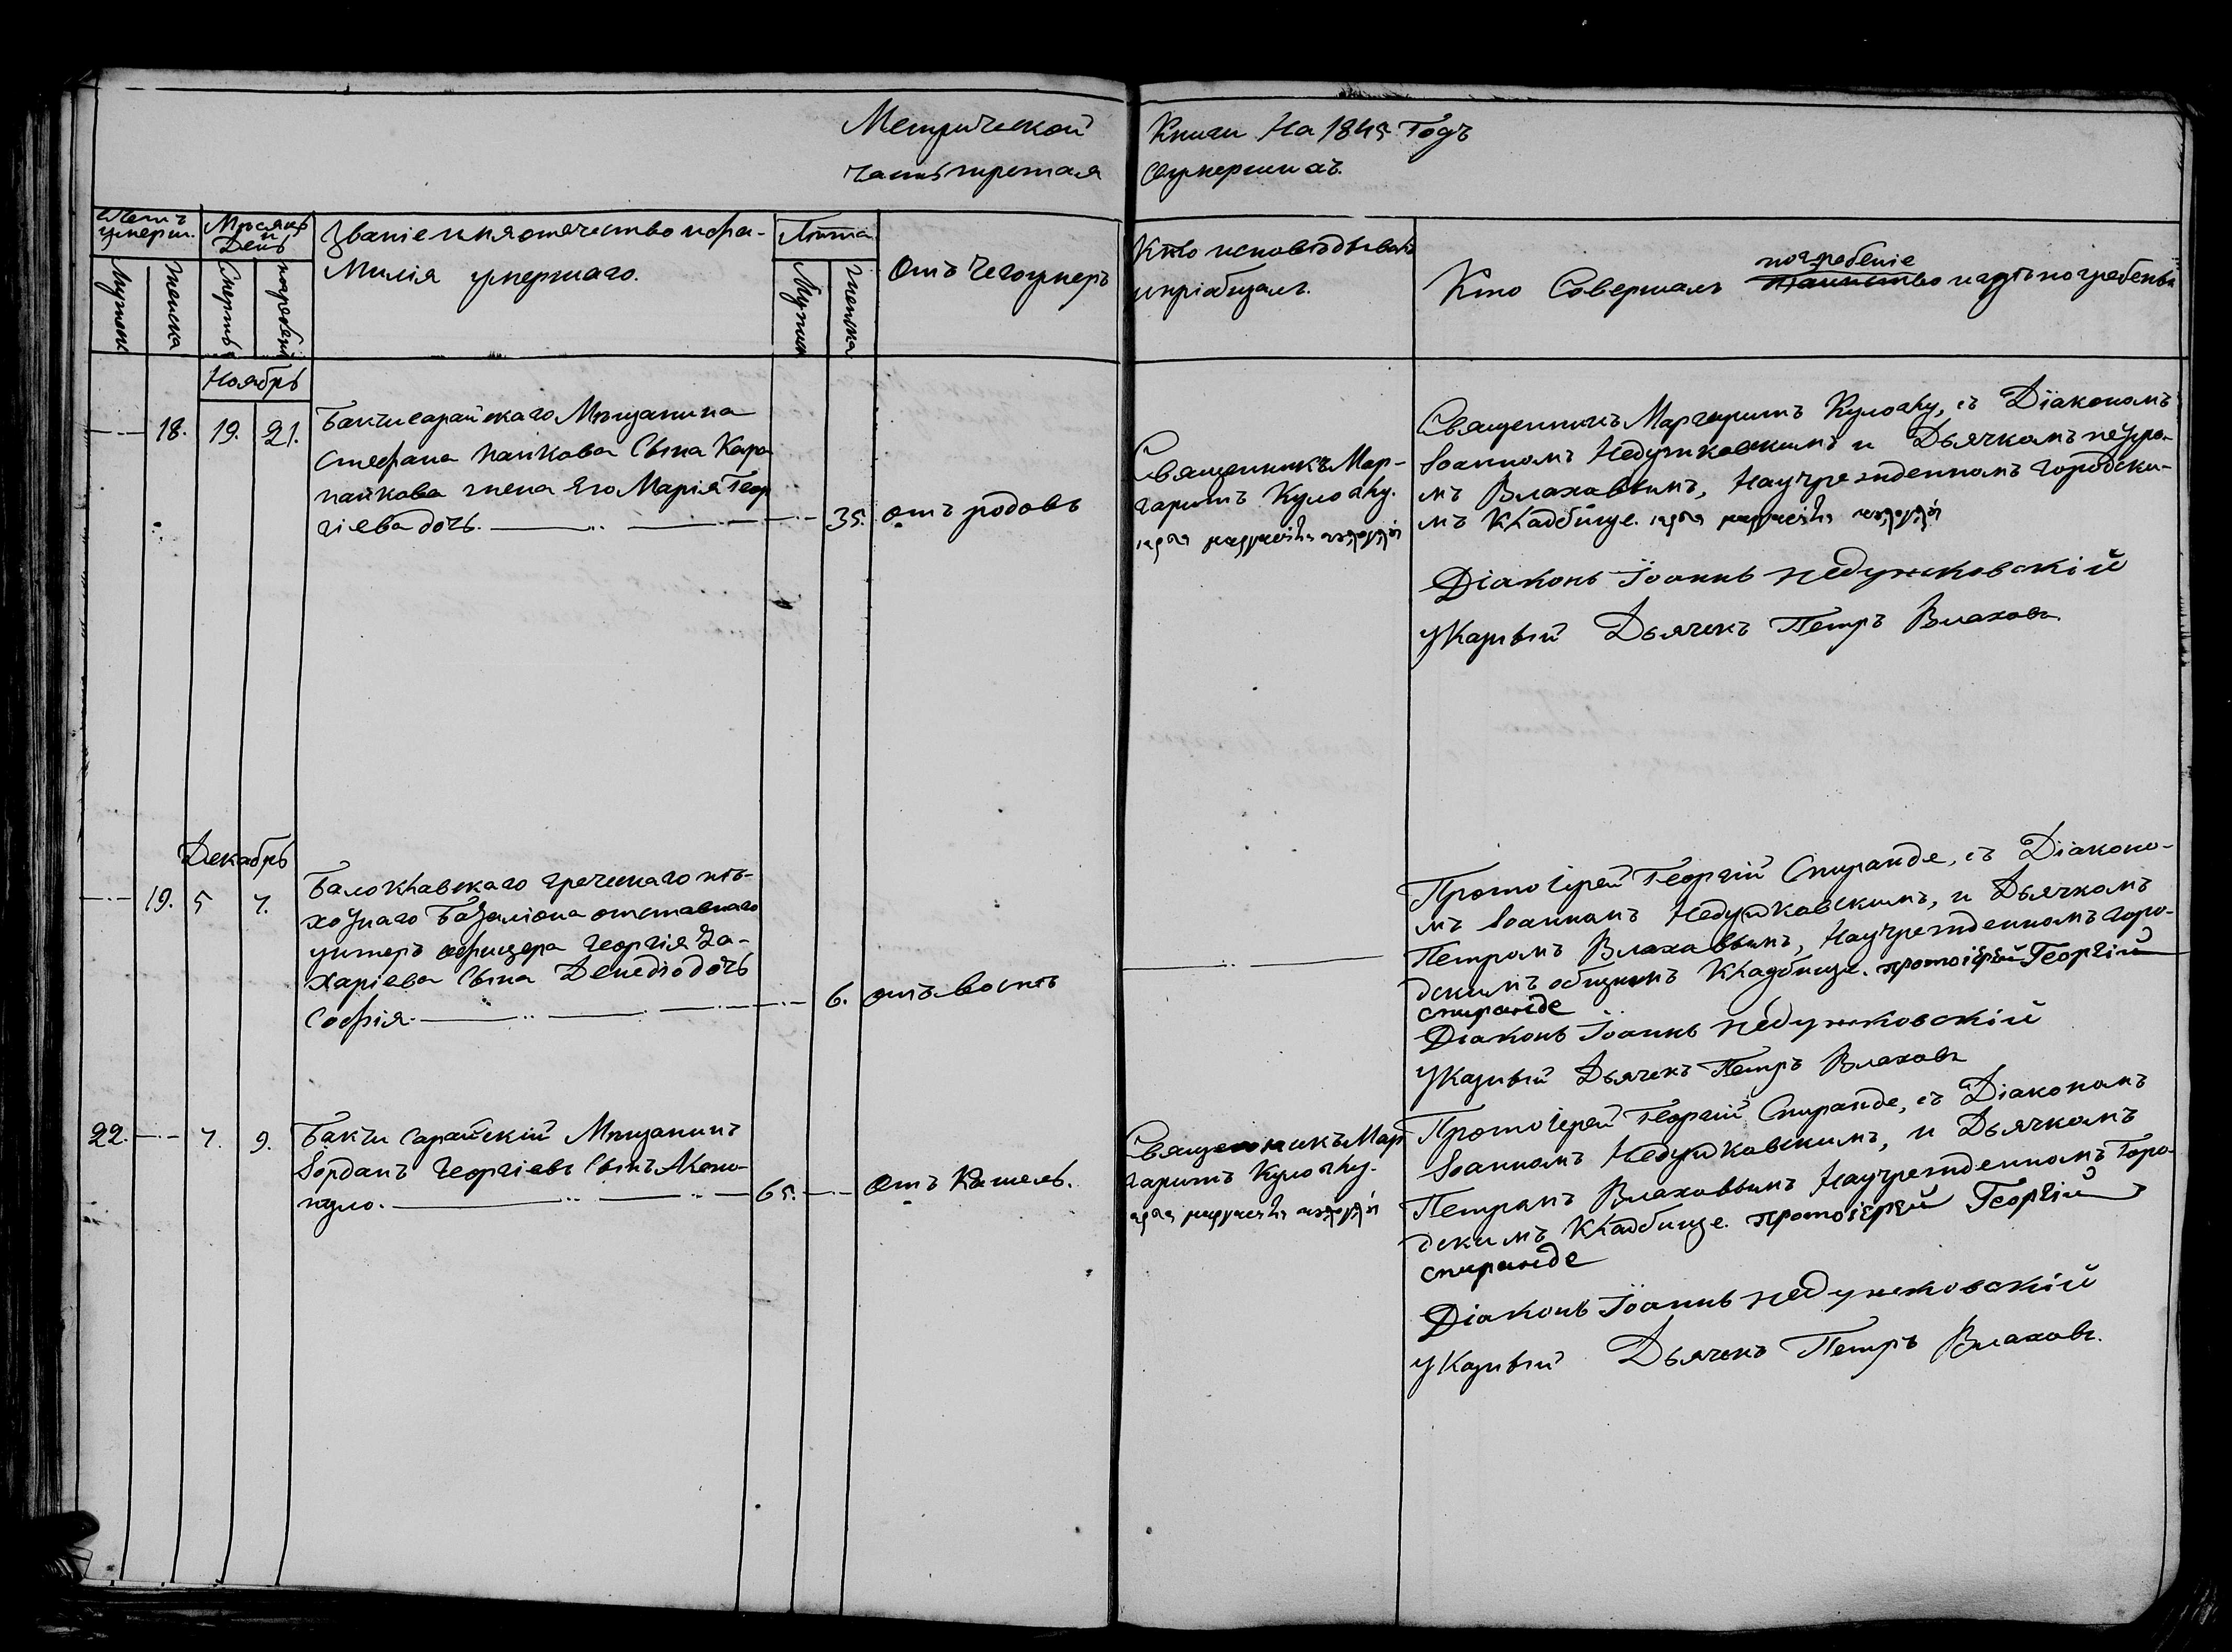 Метрической Книги На 1845 Годъ
часть третая оумершихъ.
Счетъ умерш.
Мѣсяцъ и День
Званіе имя отечество и фа-
милія умершаго.
Лѣта
Отъ Чего умеръ
Кто исповѣдывалъ
и пріобщалъ.
погребеніе
Кто Совершалъ Таинство и гдѣ погребены
Мужеск
Женска
Смерть
погребен
Мужеск
Женска
Ноябрь
18. 19. 21.
Бакчисарайскаго Мѣщанина
Стефана Панкова Сына Кара
панкова жена Его Марія Геор
гіева дочь.
35. отъ родовъ
Священникъ Мар-
гаритъ Кулочку.
Священникъ Маргаритъ Кулочку, съ Діакономъ
Іоанномъ Недужковскимъ и Дьячкомъ петро-
мъ Влаховымъ, На учрежденномъ городски-
мъ Кладбище.
Діаконъ Іоаннъ недужковскій
Указный Дьячекъ Петръ Влаховъ
Декабрь
19. 5 7.
Балоклавскаго греческаго пѣ-
хотнаго Баталіона отставнаго
унтеръ офицера Георгія За-
харіева Сына Дочь
Софія.
6. отъ воспѣ
Протоіерей Георгій Спиранде, съ Діаконо-
мъ Іоанномъ Недужковскимъ, и Дьячкомъ
Петромъ Влаховымъ, На учрежденномъ горо-
дскимъ общимъ Кладбище. протоіерей Георгій
спиранде
Діаконъ Іоаннъ недужковскій
Указный Дьячекъ Петръ Влаховъ
22. 7. 9.
Бакчи Сарайскій Мѣщанинъ
Іорданъ Георгіевъ Сынъ
65. Отъ Кашель.
Священникъ Мар
гаритъ Кулочку.
Протоіерей Георгій Спиранде, съ Діакономъ
Іоанномъ Недужковскимъ, и Дьячкомъ
Петромъ Влаховымъ На учрежденномъ Горо-
дскимъ Кладбище. протоіерей Георгій
спиранде
Діаконъ Іоаннъ недужковскій
Указный Дьячекъ Петръ Влаховъ.